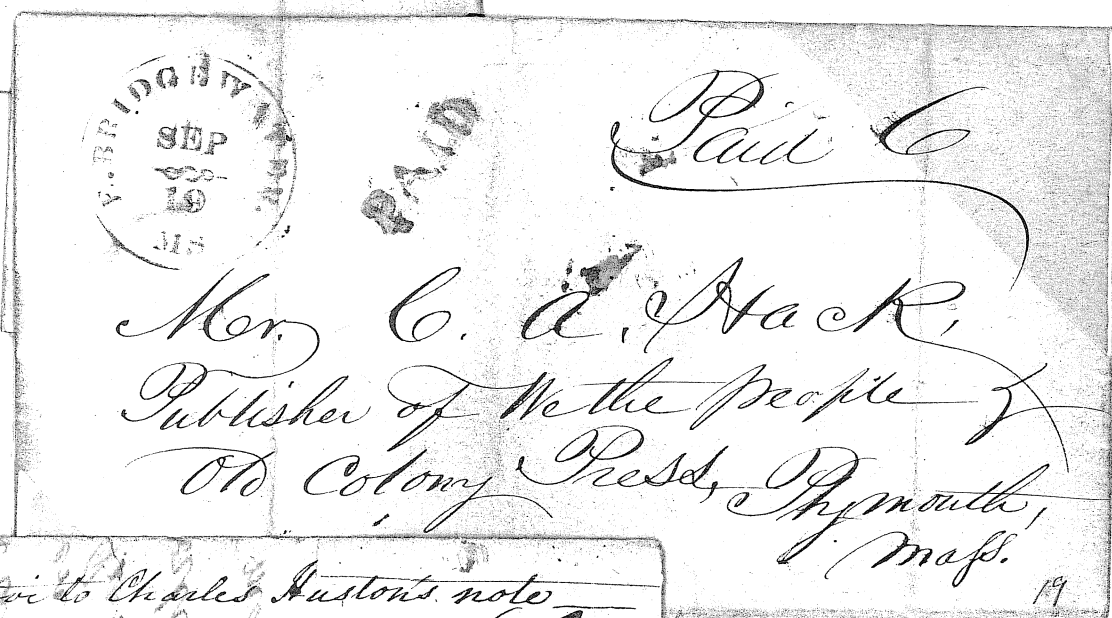 E. BRIDGEWATER
SEP
19
MS
PAID
Paid 6
Mr. C. A. Hack,
Publisher of We the people &
Old Colony Press, Plymouth,
Mass.
19
to Charles Huston's note